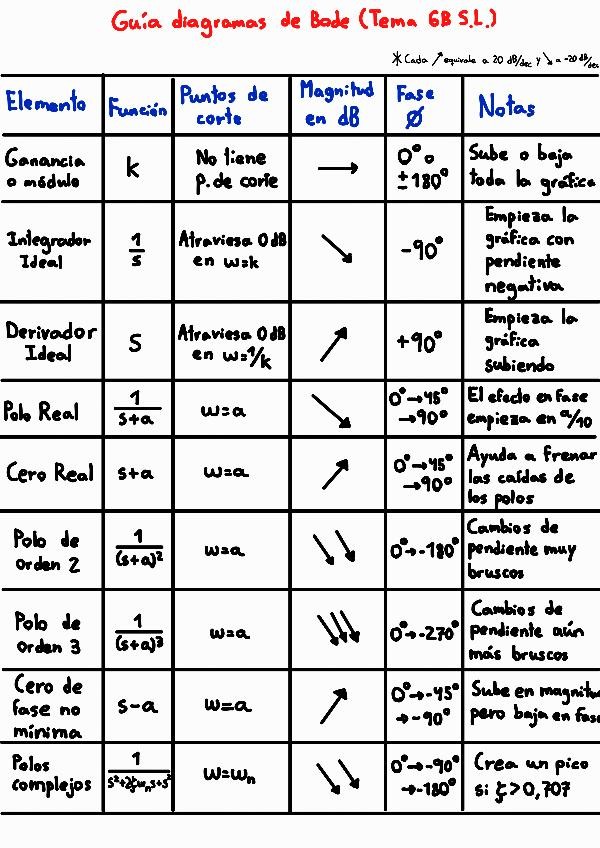 Guía diagramas de Bode (Tema 6B S.L.)
* Cada ↗ equivale a 20 dB/dec y ↘ a -20 dB/dec
Elemento
Función
Puntos de
corte
Magnitud
en dB
Fase
Ø
Notas
Ganancia
o módulo
k
No tiene
p. de corte
→
0° o
±180°
Sube o baja
toda la gráfica
Integrador
Ideal
1/s
Atraviesa 0 dB
en w=k
↘
-90°
Empieza la
gráfica con
pendiente
negativa
Derivador
Ideal
S
Atraviesa 0 dB
en w=1/k
↗
+90°
Empieza la
gráfica
subiendo
Polo Real
1/(s+a)
w=a
↘
0°→45°
→90°
El efecto en fase
empieza en a/10
Cero Real
s+a
w=a
↗
0°→45°
→90°
Ayuda a frenar
las caídas de
los polos
Polo de
orden 2
1/(s+a)²
w=a
↘↘
0°→-180°
Cambios de
pendiente muy
bruscos
Polo de
orden 3
1/(s+a)³
w=a
↘↘↘
0°→-270°
Cambios de
pendiente aún
más bruscos
Cero de
fase no
mínima
s-a
w=a
↗
0°→-45°
→-90°
Sube en magnitu
pero baja en fase
Polos
complejos
1/(s²+2ξwₙs+s²)
w=wₙ
↘↘
0°→-90°
→-180°
Crea un pico
si ξ>0,707